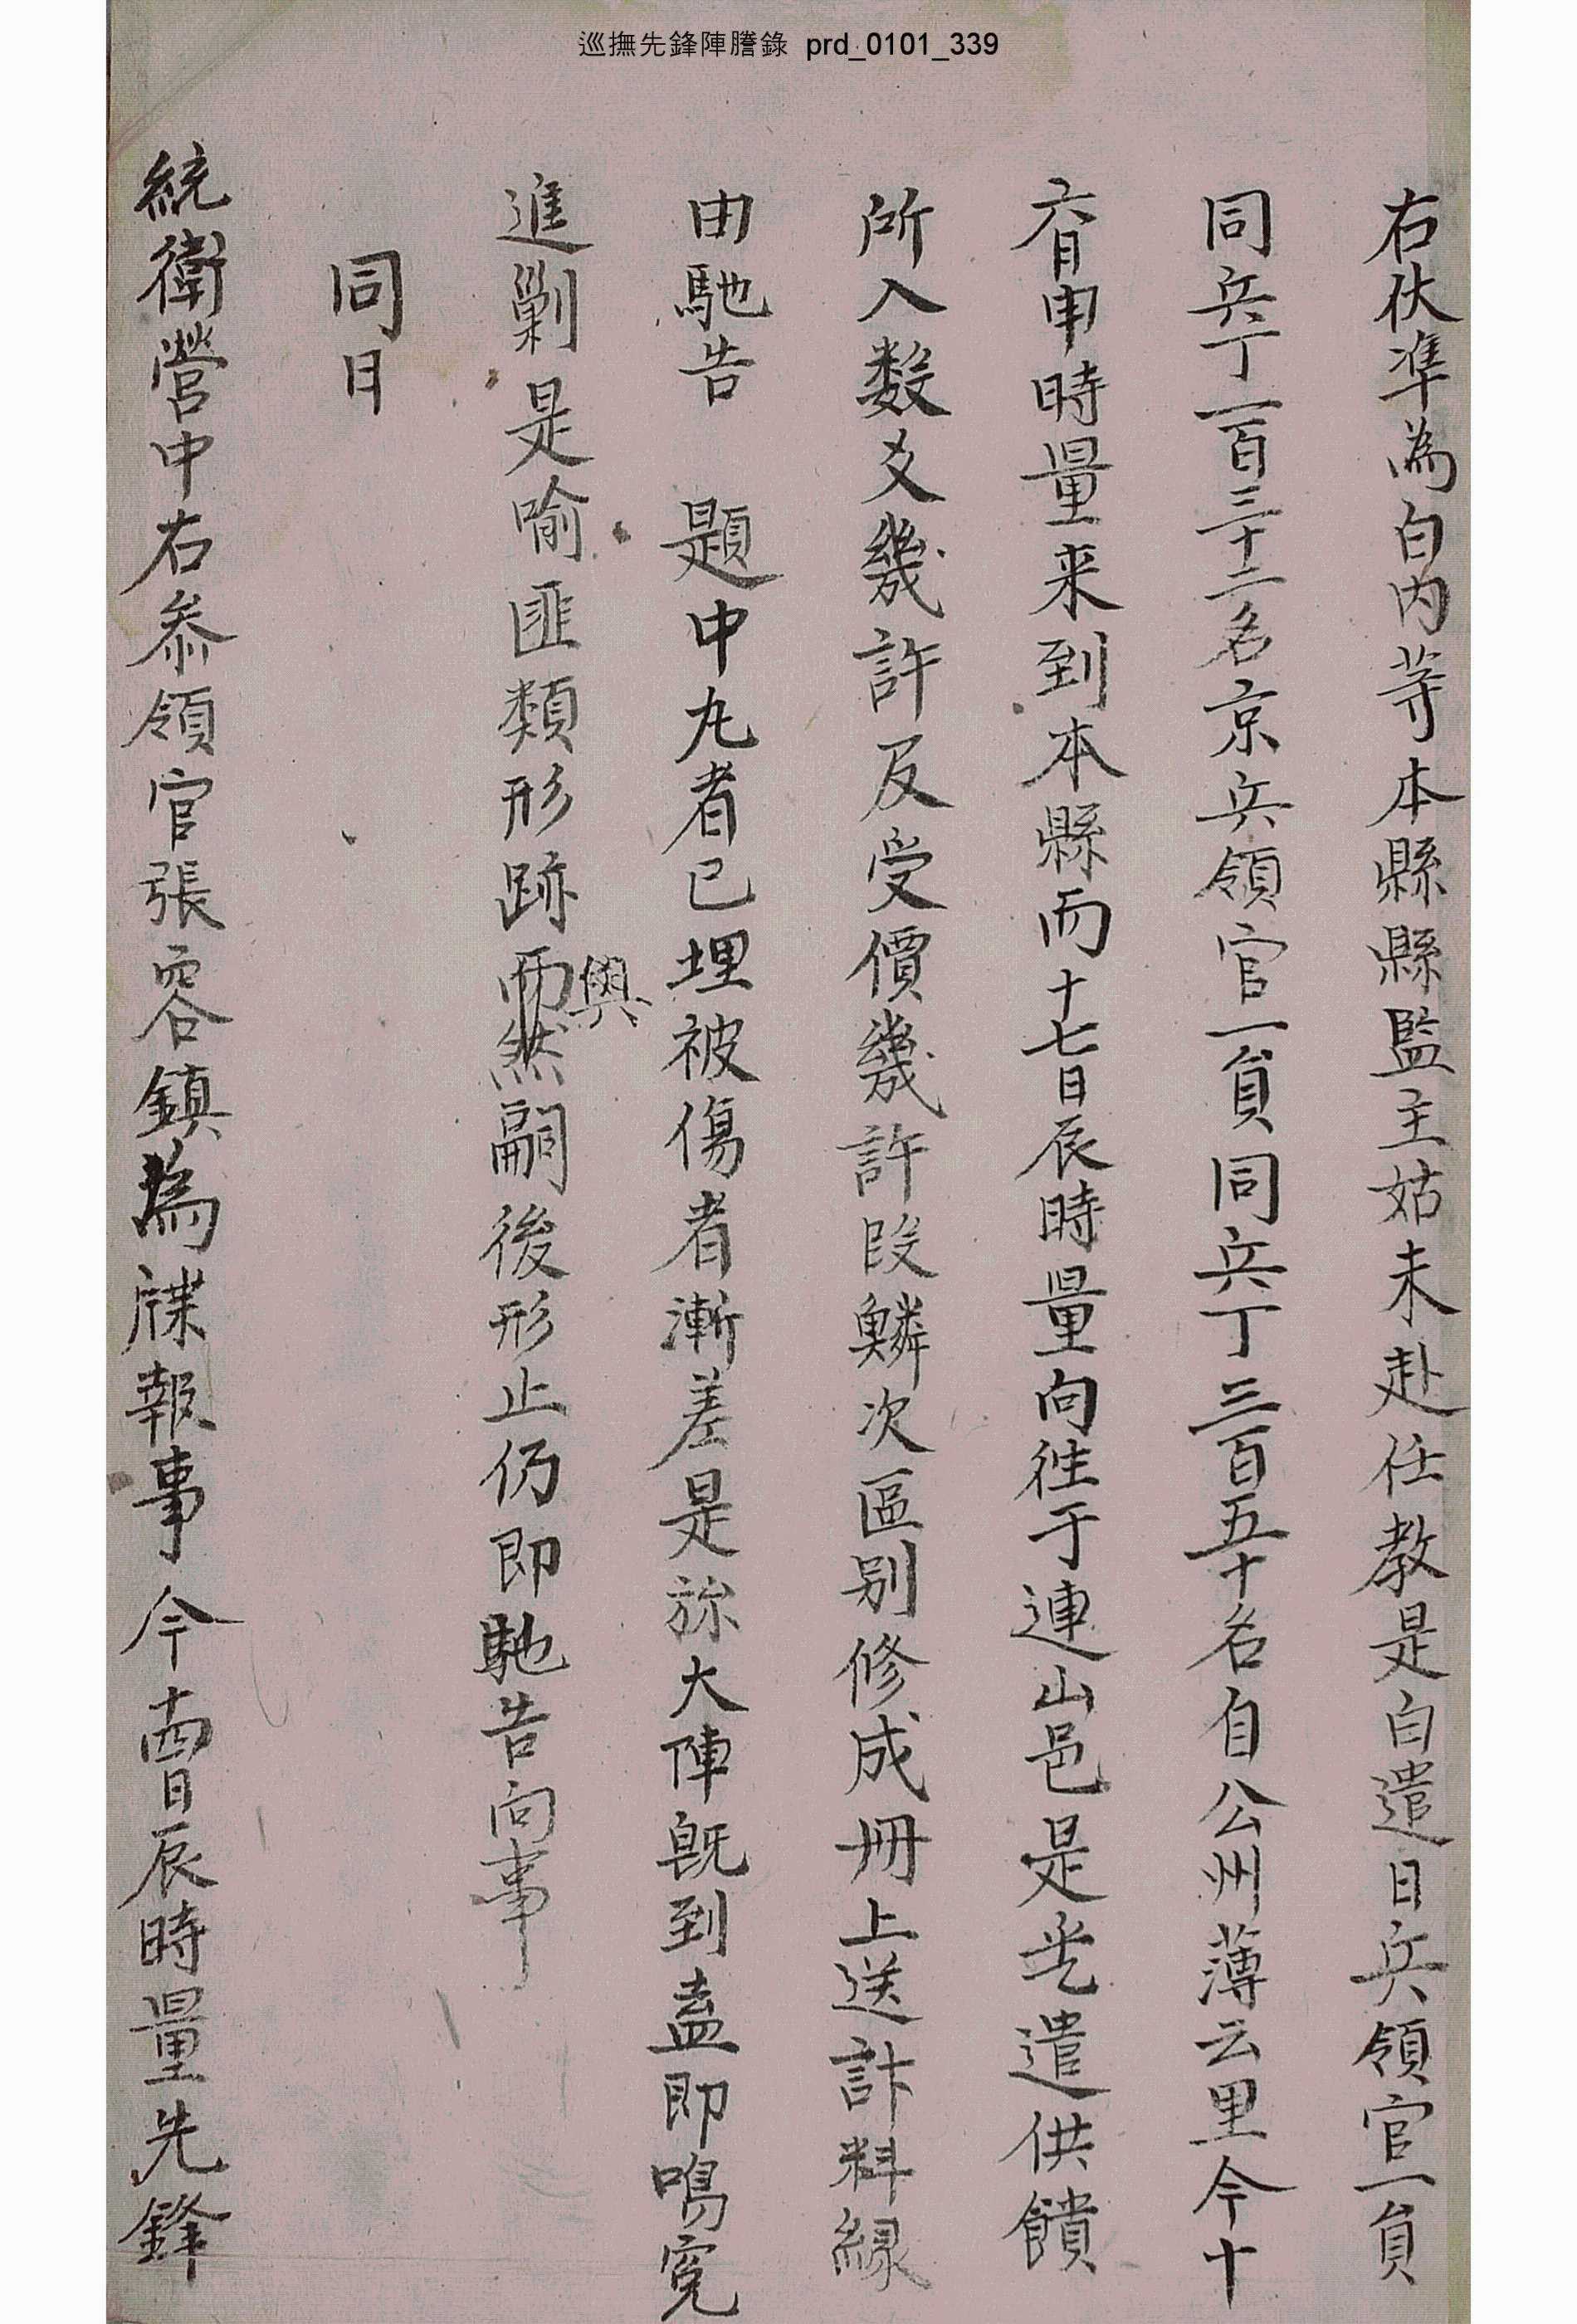 巡撫先鋒陣謄錄 prd_0101_339
右伏準爲白內等本縣縣監主姑未赴任敎是白遣日兵領官一員
同兵丁一百三十二名京兵領官一員同兵丁三百五十名自公州薄云里今十
六日申時量来到本縣而十七日辰時量向徃于連山邑是㢱遣供饋
所入数爻幾許及受價幾許段鱗次區別修成冊上送計料緣
由馳告 題中丸者已埋被傷者漸差是旀大陣旣到盍卽鳴寃
進剿是喩匪類形跡與然嗣後形止仍卽馳告向事
同日
統衛營中右叅領官張容鎭爲牒報事今十四日辰時量先鋒